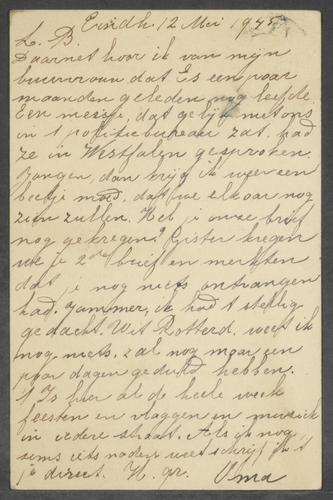 Eindh. 12 Mei 1945
L. B.
Daarnet hoor ik van mijn
buurvrouw dat Es een paar
maanden geleden nog leefde.
Een meisje, dat gelijk met ons
in 't politiebureau zat, had
ze in Westfalen gesproken.
Jongen, dan krijg ik weer een
beetje moed, dat we elkaar nog
zien zullen. Heb je onze brief
nog gekregen? Gister kregen
we je 2de brief en merkten
dat je nog niets ontvangen
had. Jammer, ik had 't stellig
gedacht. Uit Rotterd. weet ik
nog niets, zal nog maar een
paar dagen geduld hebben.
't Is hier al de heele week
feesten en vlaggen en muziek
in iedere straat. Als je nog
soms iets nader weet schrijf ik 't
je direct. H. gr. Oma